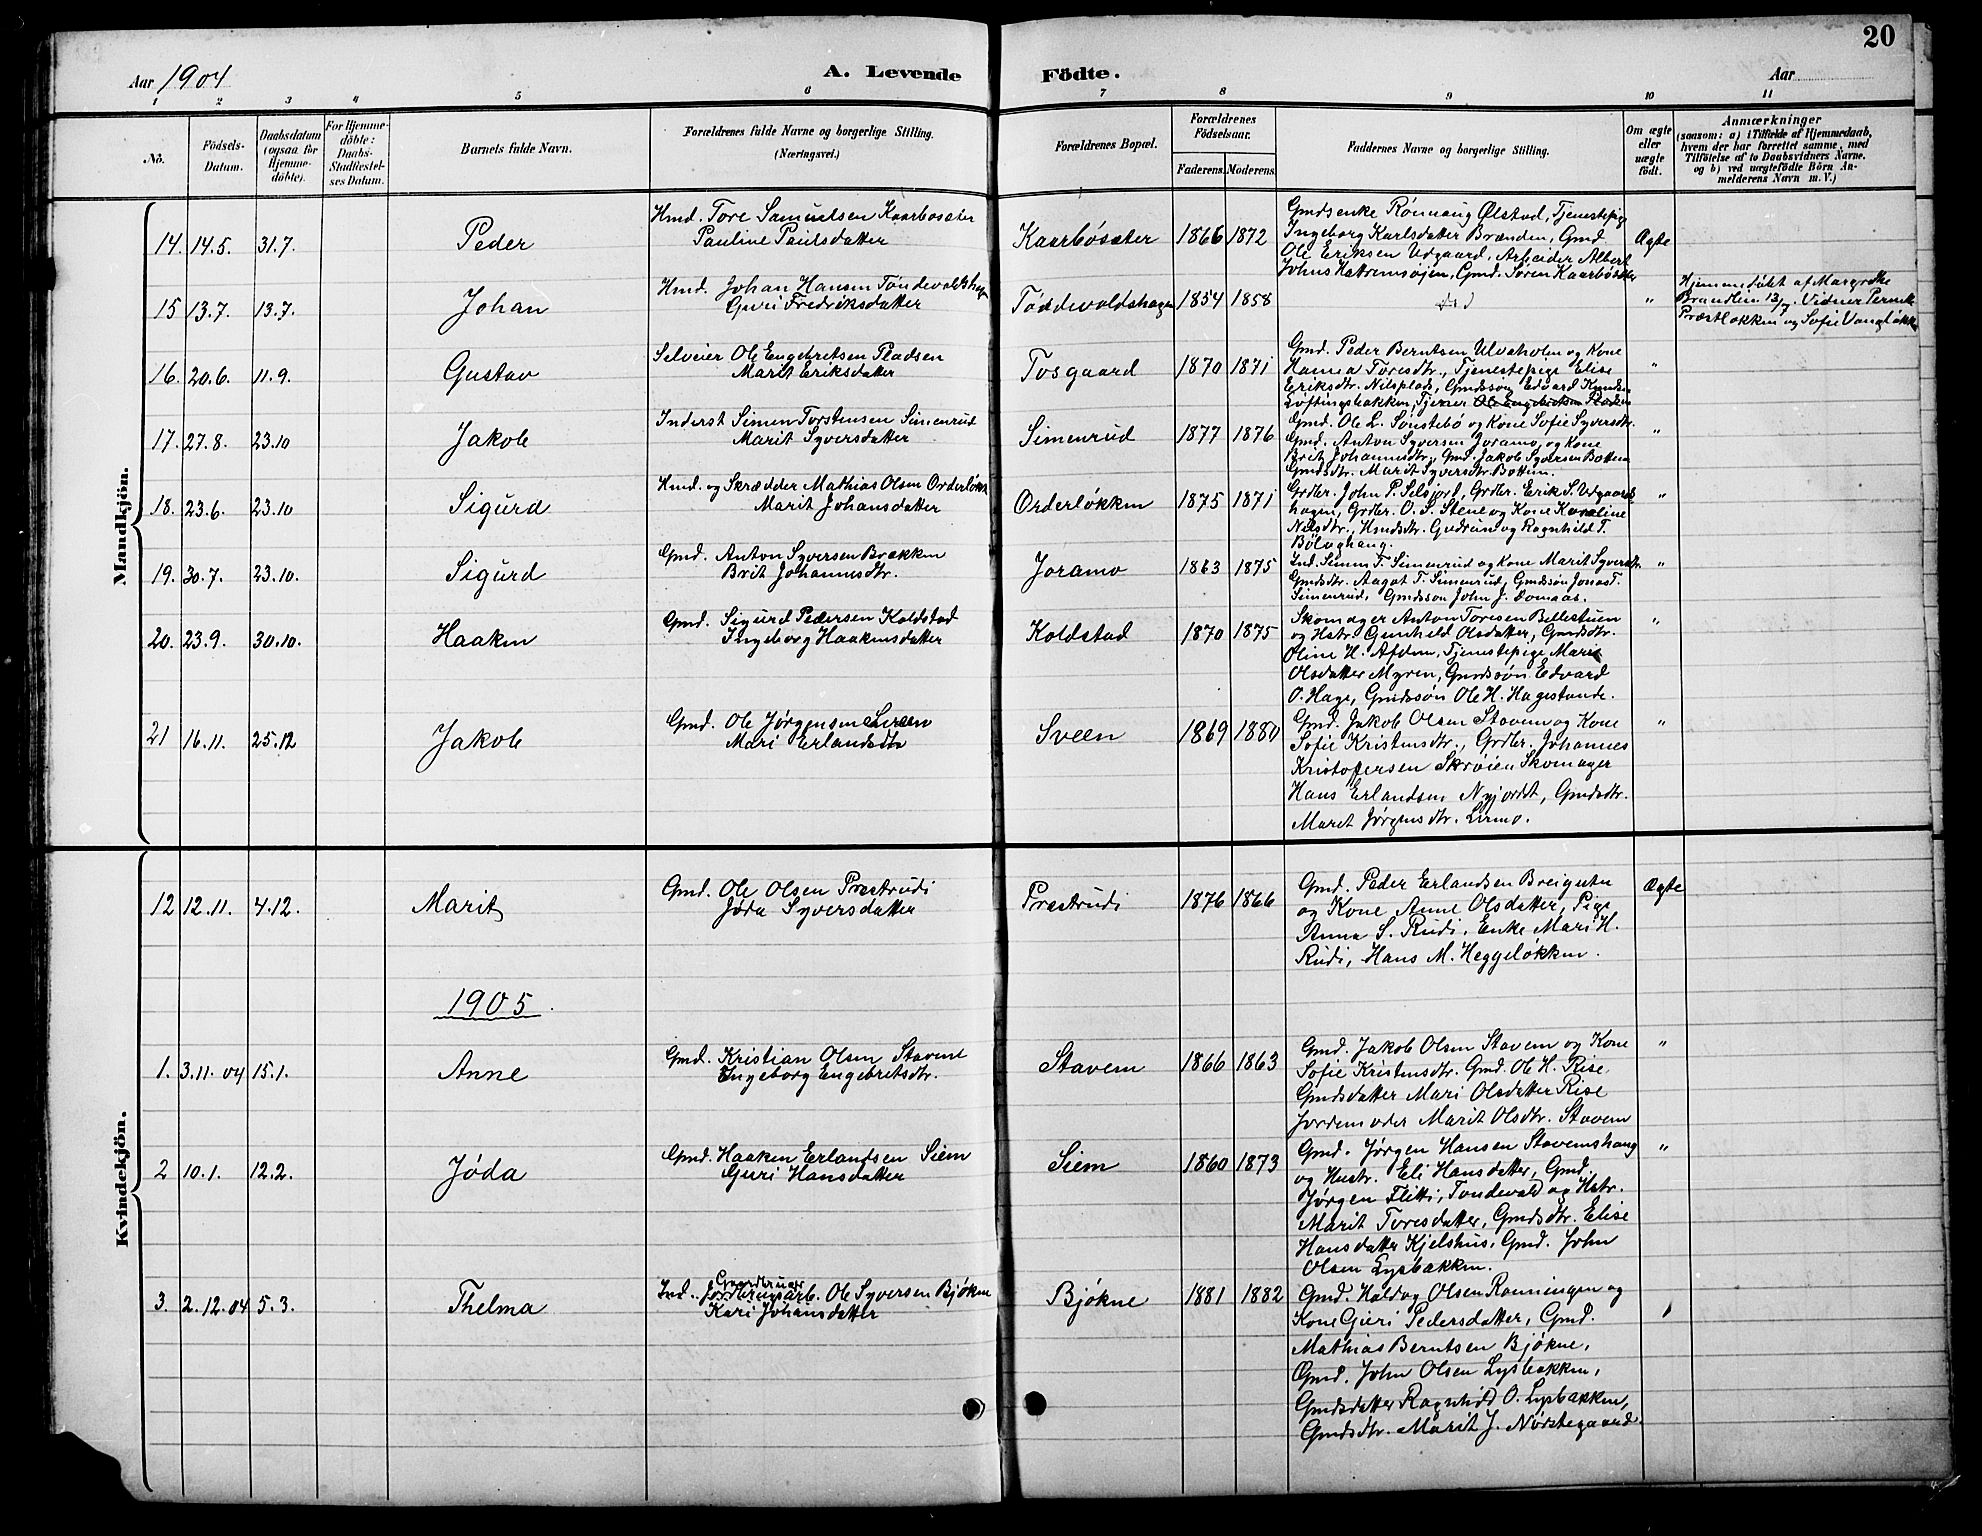 20
Aar 1904
A. Levende Födte.
Aar
1 2 3 4 5 6 7 8 9 10 11
No.
Födsels-Datum.
Daabsdatum (ogsaa for Hjemme-döbte).
For Hjemme-döbte: Daabs-Stadfæstel-ses Datum.
Barnets fulde Navn.
Forældrenes fulde Navne og borgerlige Stilling. (Næringsvei.)
Forældrenes Bopæl.
Forældrenes Födselsaar.
Faderens. Moderens.
Faddernes Navne og borgerlige Stilling.
Om ægte eller uægte födt.
Anmærkninger
(saasom: a) i Tilfælde af Hjemmedaab, hvem der har forrettet samme, med Tilföielse af to Daabsvidners Navne, og b) ved uægtefödte Börn An-melderens Navn m. V.)
Mandkjön.
14. 14.5. 31.7. Peder
Hmd. Tore Samuelsen Kaarbøsæter
Pauline Paulsdatter
Kaarbøsæter 1866 1872
Gmdsenke Rønnaug Ølstad, Tjenestepige
Ingeborg Karlsdatter Brænden, Gmd
Ole Eriksen Udgaard, Arbeider Albert
Johns Hatremsøien, Gmd. Søren Kaarbøsæter
Ægte
15 13.7. 13.7. Johan
Hmd. Johan Hansen Tøndevoldshagen
Guri Fredriksdatter
Toddevoldshagen 1854 1858
"
Hjemmedøbt af Margrethe
Brændlien 13/7. Vidner Pernille
Præstløkken og Sofie Vangløkken
16. 20.6. 11.9. Gustav
Selveier Ole Engebretsen Pladsen
Marit Eriksdatter
Tosgaard 1870 1871
Gmd. Peder Berntsen Ulvaholm og Kone
Hanna Toresdtr., Tjenestepige Elise
Eriksdtr. Nilsplads, Gmdssøn Edvard Knudsen
Løftingsbakken, Tjener Ole Engebretsen Pladsen
"
17. 27.8. 23.10 Jakob
Inderst Simen Torstensen Simenrud
Marit Syversdatter
Simenrud 1877 1876
Gmd. Ole L. Sønstebø og Kone Sofie Syversdtr.
Gmd. Anton Syversen Joramo, og Kone
Brit Johannesdtr., Gmd. Jakob Syversen Botten
Gmdsdtr. Marit Syversdtr. Botten.
"
18. 23.6. 23.10 Sigurd
Hmd. og Skrædder Mathias Olsen Orderløkk
Marit Johansdatter
Orderløkken 1875 1871
Grdbr. John P. Selsjord, Grdbr. Erik S. Udgaards-
hagen, Grdbr. O. S. Stene og Kone Karoline
Nilsdtr., Hmdsdtr. Gudrun og Ragnhild T.
Bølvghaug.
"
19. 30.7. 23.10. Sigurd
Gmd. Anton Syversen Brækken
Brit Johannesdtr.
Joramo 1863 1875
Ind. Simen T. Simenrud og Kone Marit Syversdtr.
Gmdsdtr. Aagot T. Simenrud, Gmdssøn Jonas T.
Simenrud, Gmdssøn John J. Domaas.
"
20. 23.9. 30.10. Haaken
Gmd. Sigurd Pedersen Koldstad
Ingeborg Haakensdatter
Koldstad 1870 1875
Skomager Anton Toresen Bellestuen
og Hstr. Gunhild Olsdatter, Gmdsdtr.
Oline H. Afdem, Tjenestepige Marie
Olsdatter Myren, Gmdssøn Edvard
O. Hage, Gmdssøn Ole H. Hagestande.
"
21 16.11. 25.12 Jakob
Gmd. Ole Jørgensen
Mari Erlandsdtr
Sveen 1869 1880
Gmd. Jakob Olsen Stavem og Kone
Sofie Kristensdtr., Grdbr. Johannes
Kristofersen Skrøien Skomager
Hans Erlandsen Nyjordet, Gmdsdtr.
Marit Jørgensdtr. Lirmo.
"
Kvindekjön.
12 12.11. 4.12. Marit
Gmd. Ole Olsen Prestrudi
Jøda Syversdatter
Prestrudi 1876 1866
Gmd. Peder Erlandsen Breiguten
og Kone Anne Olsdatter, Pige
Anna S. Rudi, Enke Mari H.
Rudi, Hans M. Heggeløkken.
Ægte
1905.
1. 3.11.04 15.1. Anne
Gmd. Kristian Olsen Stavem
Ingeborg Engebretsdtr.
Stavem 1866 1863
Gmd. Jakob Olsen Stavem og Kone
Sofie Kristensdtr. Gmd. Ole H. Rise
Gmdsdatter Mari Olsdatter Rise
Jordemoder Marit Olsdtr. Stavem
"
2 10.1. 12.2. Jøda
Gmd. Haaken Erlandsen Siem
Guri Hansdatter
Siem 1860 1873
Gmd. Jørgen Hansen Stavemshaug
og Hustr. Eli Hansdatter, Gmd.
Jørgen Flitti, Tondevold og Hstr.
Marit Toresdatter, Gmdsdtr. Elise
Hansdatter Kjelshus, Gmd. John
Olsen Lysbakken.
"
3 2.12.04 5.3. Thelma
Gaardbruger
Ind. Jordbrugsarb. Ole Syversen Bjøkne
Kari Johansdatter
Bjøkne 1881 1882
Gmd. Haldog Olsen Rønningen og
Kone Guri Pedersdatter, Gmd.
Mathias Berntsen Bjøkne,
Gmd. John Olsen Lysbakken,
Gmdsdatter Ragnhild O. Lysbakken,
Gmdsdtr. Marit J. Nørstegaard.
"